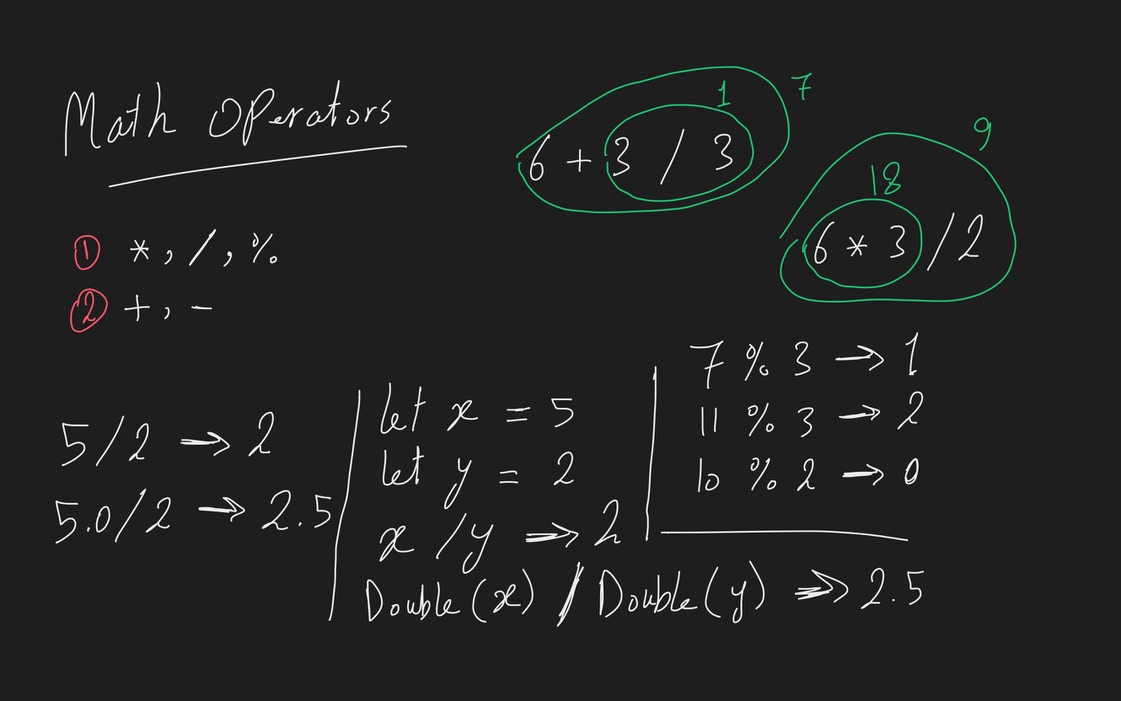 Math Operators
① *, /, %
② +, -
1
7
6 + 3 / 3
9
18
6 * 3 / 2
5/2 → 2
5.0/2 → 2.5
let x = 5
let y = 2
x / y → 2
Double(x) / Double(y) → 2.5
7 % 3 → 1
11 % 3 → 2
10 % 2 → 0